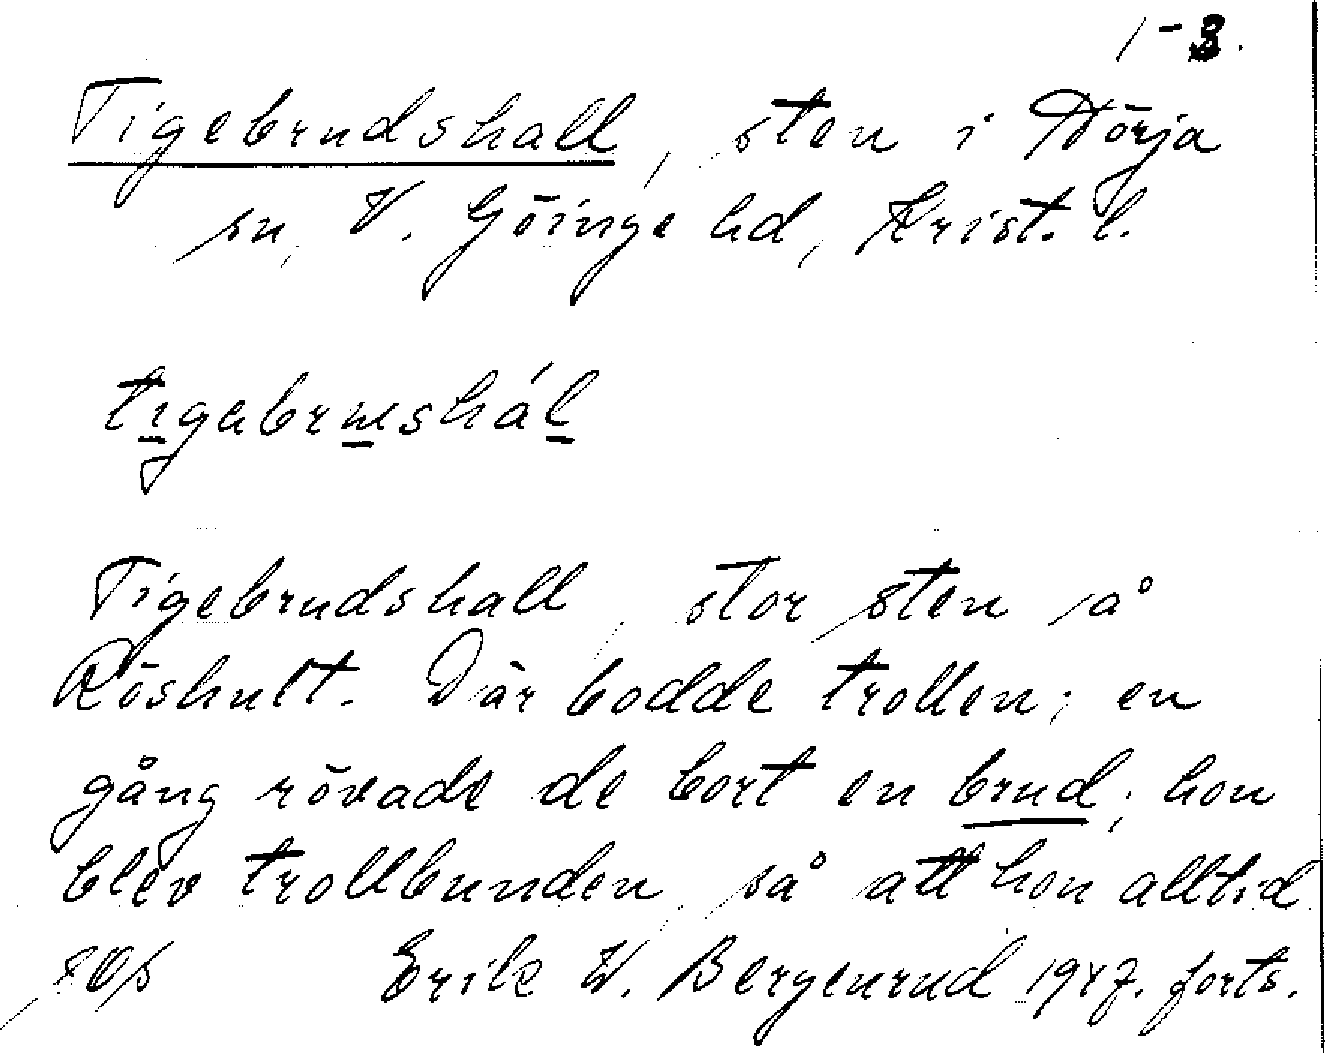 1-3.
Tigebrudshall, sten i Nörja
sn, V. Göinge hd, Krist. l.
Tigebrudshall, stor sten på
Röshult. Där bodde trollen; en
gång rövade de bort en brud; hon
blev trollbunden, så att hon alltid
Erik W. Bergenrud 1947. forts.